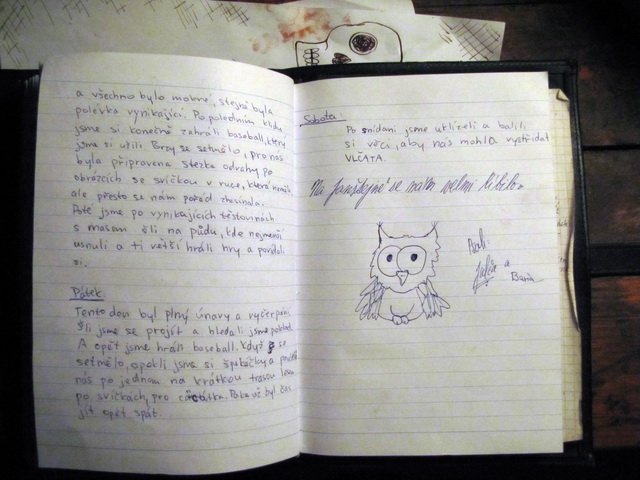 a všechno bylo mokré, stejně byla
polévka vynikající. Po poledním klidu
jsme si konečně zahráli baseball, který
jsme si užili. Brzy se setmělo, pro nás
byla připravena stezka odvahy po
obrázcích se svíčkou v ruce, která
ale přesto se nám pořád zhasínala.
Poté jsme po vynikajících těstovinách
s masem šli na půdu, kde nejmenší
usnuli a ti větší hráli hry a povídali
si.
Pátek
Tento den byl plný únavy a vyčerpání.
Šli jsme se projít a hledali jsme poklad.
A opět jsme hráli baseball. Když se
setmělo, opekli jsme si špekáčky a
nás po jednom na krátkou trasou
po svíčkách, pro Pak už byl čas
jít opět spát.
Sobota
Po snídani jsme uklízeli a balili
si věci, aby nás mohla vystřídat
VLČATA.
Na se nám velmi líbilo.
a
Bára